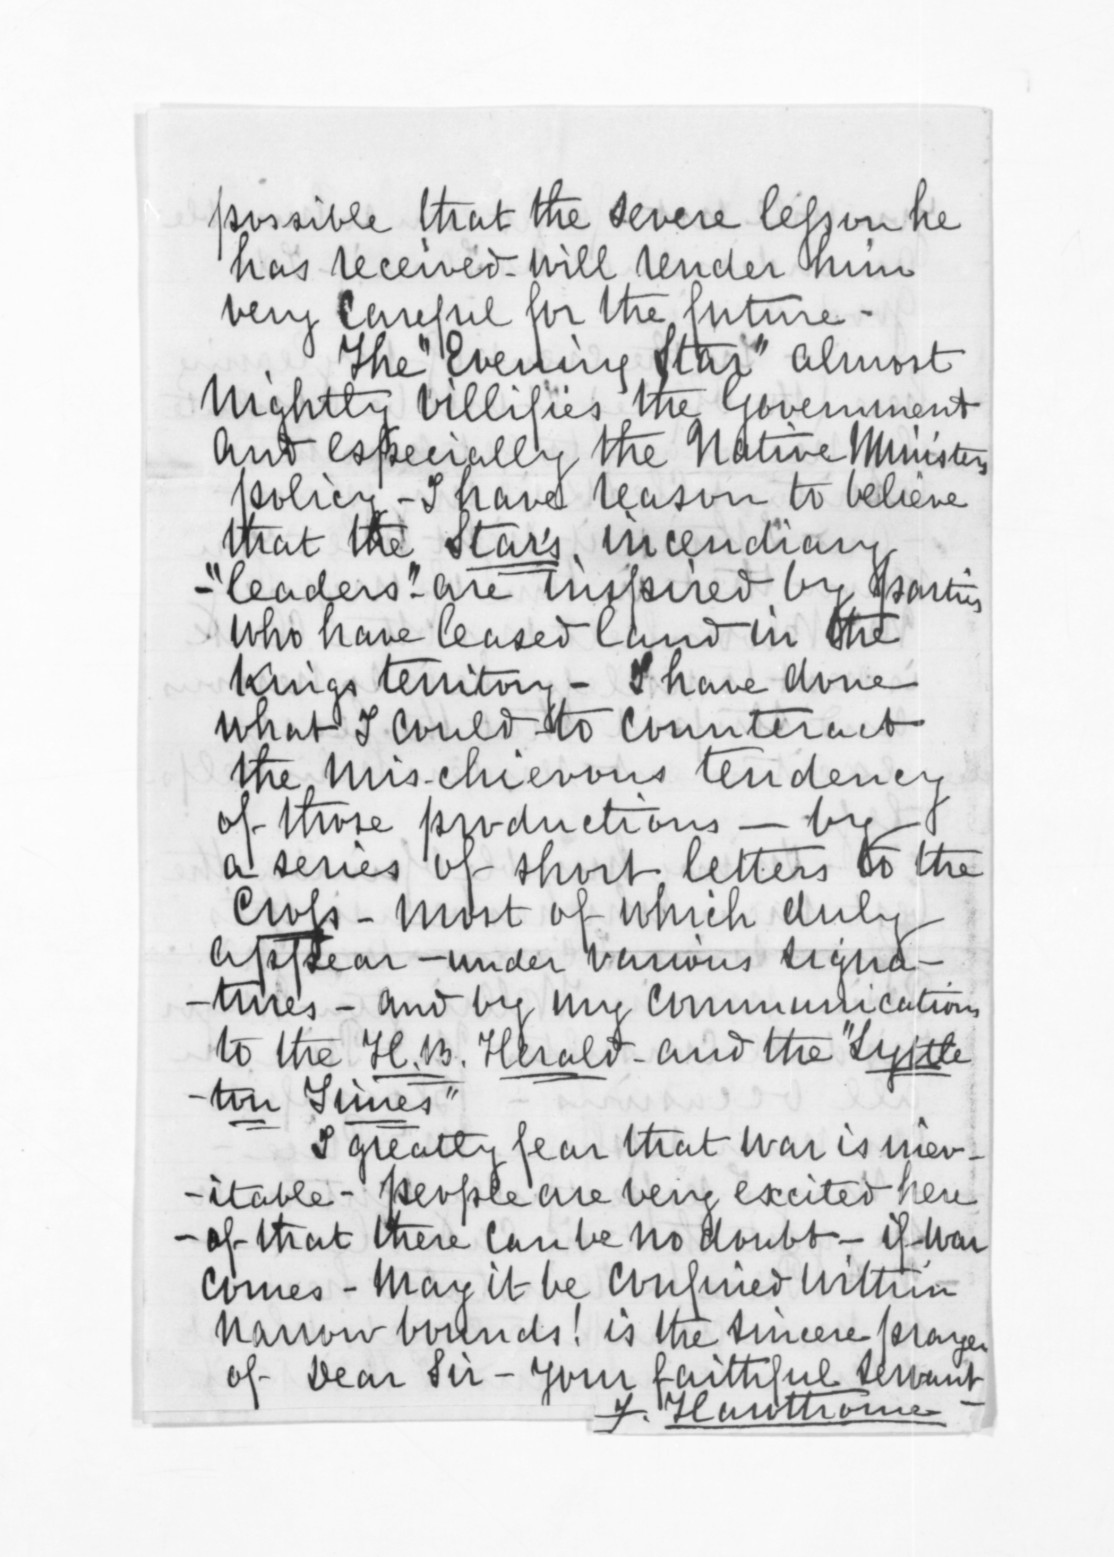 possible that the severe lesson he
has received - will render him
very careful for the future -
The "Evening Star" almost
Nightly villifies the Government
and especially the Native Ministers
policy - I have reason to believe
that the Star's incendiary
- "leaders" - are inspired by parties
who have leased land in the
Kings territory - I have done
what I could - to counteract
the mis-chievous tendency
of those productions - by
a series of short letters to the
Cross - most of which duly
appear - under various signa-
- tures - and by my communications
to the H.B. Herald - and the "Lyttle
- ton Times"
I greatly fear that war is inev-
- itable - people are very excited here
- of that there can be no doubt - if war
comes - May it be confined within
narrow bounds! is the sincere prayer
of Dear Sir - Your faithful servant -
F. Hawthorne